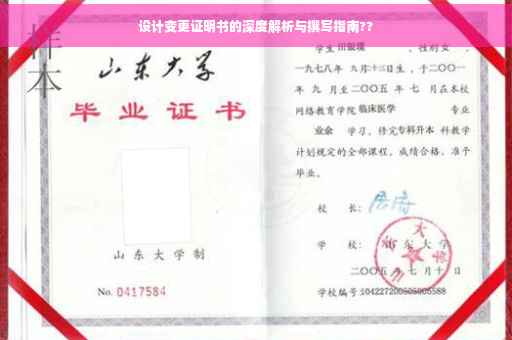 设计变更证明书的深度解析与撰写指南??
样本
山东大学
毕业证书
山东大学制
No. 0417584
学生 性别女，
一九七八年 九月十三日生，于二〇〇一
年 九 月至二〇〇五 年 七 月在本校
网络教育学院临床医学 专业
业余 学习，修完专科升本科教学
计划规定的全部课程，成绩合格，准予
毕业。
校 长：
学 校：山东大学
二〇〇五 年 七 月 十 日
学校编号: